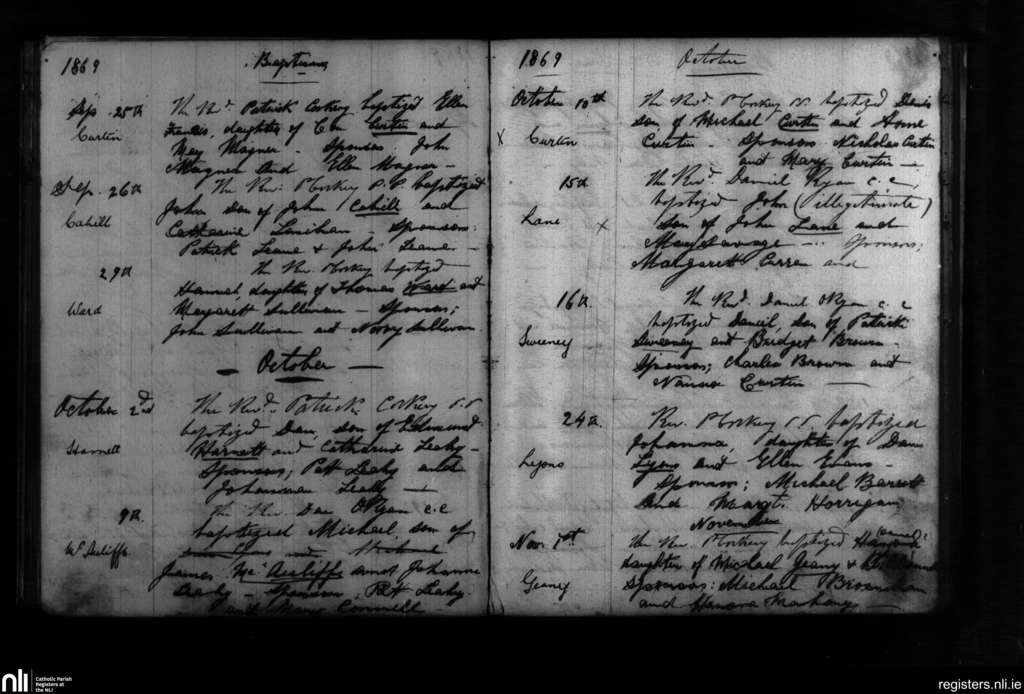 1869
Baptisms
Sep. 25th
Curtin
The Revd. Patrick Corkery baptized Ellen
Francis, daughter of Con Curtin and
May Magner - Sponsors: John
Magner and Ellen Magner -
Sep. 26th
Cahill
The Rev. P Corkery P.P. baptized
John son of John Cahill and
Catherine Lenihan - Sponsors:
Patrick Leane & John Leane -
29th
Ward
The Rev. P Corkery baptized
Hannah, daughter of Thomas Ward and
Margarett Sullivan - Sponsors;
John Sullivan and Nory Sullivan.
- October -
October 2nd
Harnett
The Revd. Patrick Corkery P.P.
baptized Dan, son of Edmund
Harnett and Catharine Leahy -
Sponsors; Patt Leahy and
Johannan Leahy -
9th
McAuliffe
The Rev. Dan O'Ryan c.c
baptized Michael, son of
James McAuliffe and Johanna
Leahy - Sponsors, Patt Leahy
and Mary Connell
1869
October
October 10th
x Curtin
The Revd. P Corkery P.P. baptized Denis
son of Michael Curtin and Honor
Curtin - Sponsors Nicholas Curtin
and Mary Curtin -
15th
Lane x
The Revd. Daniel Ryan c.c,
baptized John (illegitimate)
son of John Lane and
May Savage - Sponsors;
Margarett Curren and
16th
Sweeney
The Revd. Daniel O'Ryan c.c
baptized Daniel, son of Patrick
Sweeney and Bridget Brown -
Sponsors; Charles Brown and
Nannora Curtin -
24th.
Lyons
Rev. P Corkery P.P. baptized
Johanna, daughter of Dan
Lyons and Ellen Evans -
Sponsors; Michael Barrett
and Margt. Horrigan,
November
Nov. 1st
Geaney
The Rev. P Corkery baptized
daughter of Michael Geany &
Sponsors: Michael Brosnahan
and Hanora Mahony -
nli Catholic Parish
Registers at
the NLI
registers.nli.ie